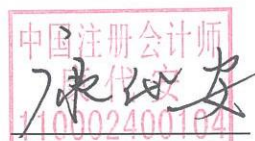 中国注册会计师
康代安
110002400104